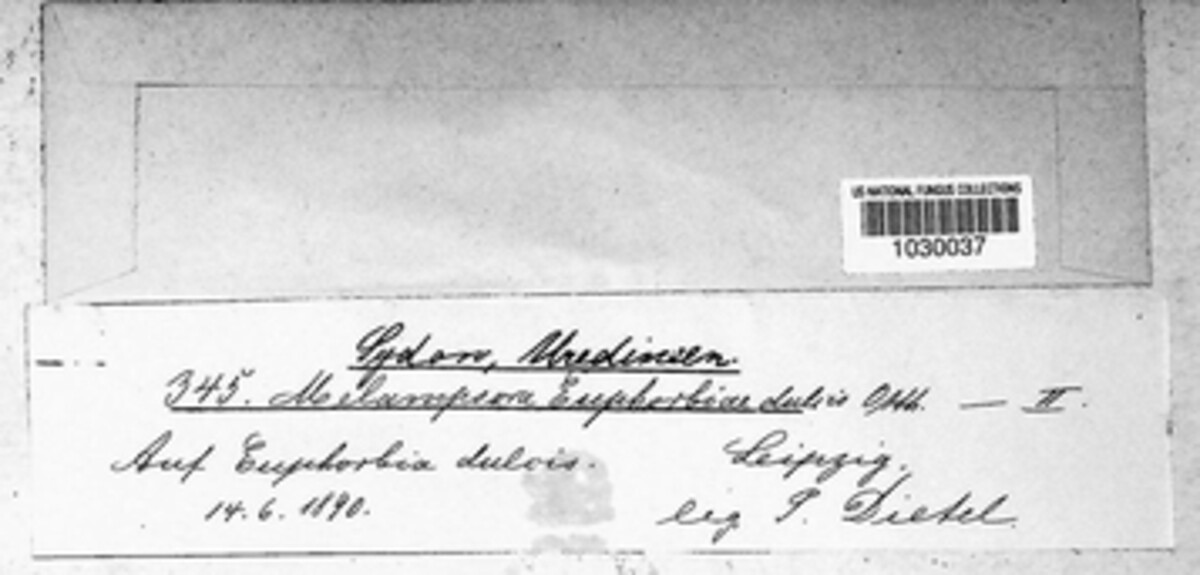 US NATIONAL FUNGUS COLLECTIONS
1030037
Sydow, Uredineen.
345. Melampsora Euphorbiae dulcis Otth. — II.
Auf Euphorbia dulcis. Leipzig.
14. 6. 1890. leg P. Dietel.